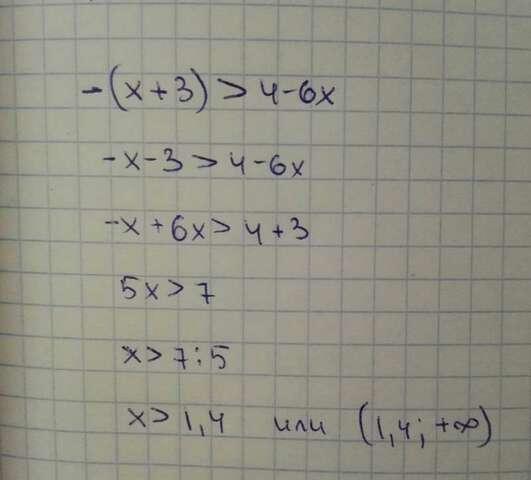 -(x+3) > 4-6x
-x-3 > 4-6x
-x+6x > 4+3
5x > 7
x > 7:5
x > 1,4 или (1,4; +∞)